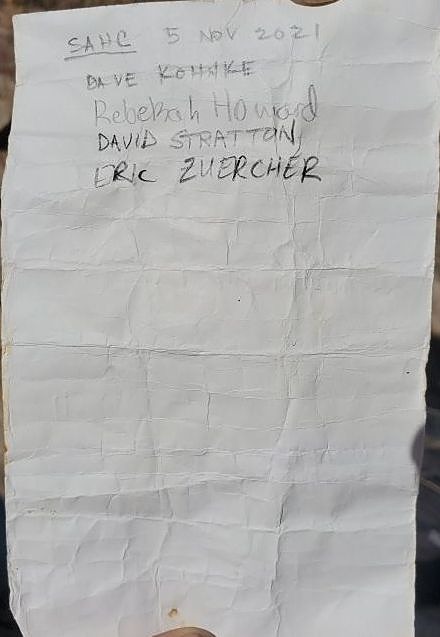 SAHC 5 NOV 2021
DAVE KOHNKE
Rebekah Howard
DAVID STRATTON
ERIC ZUERCHER